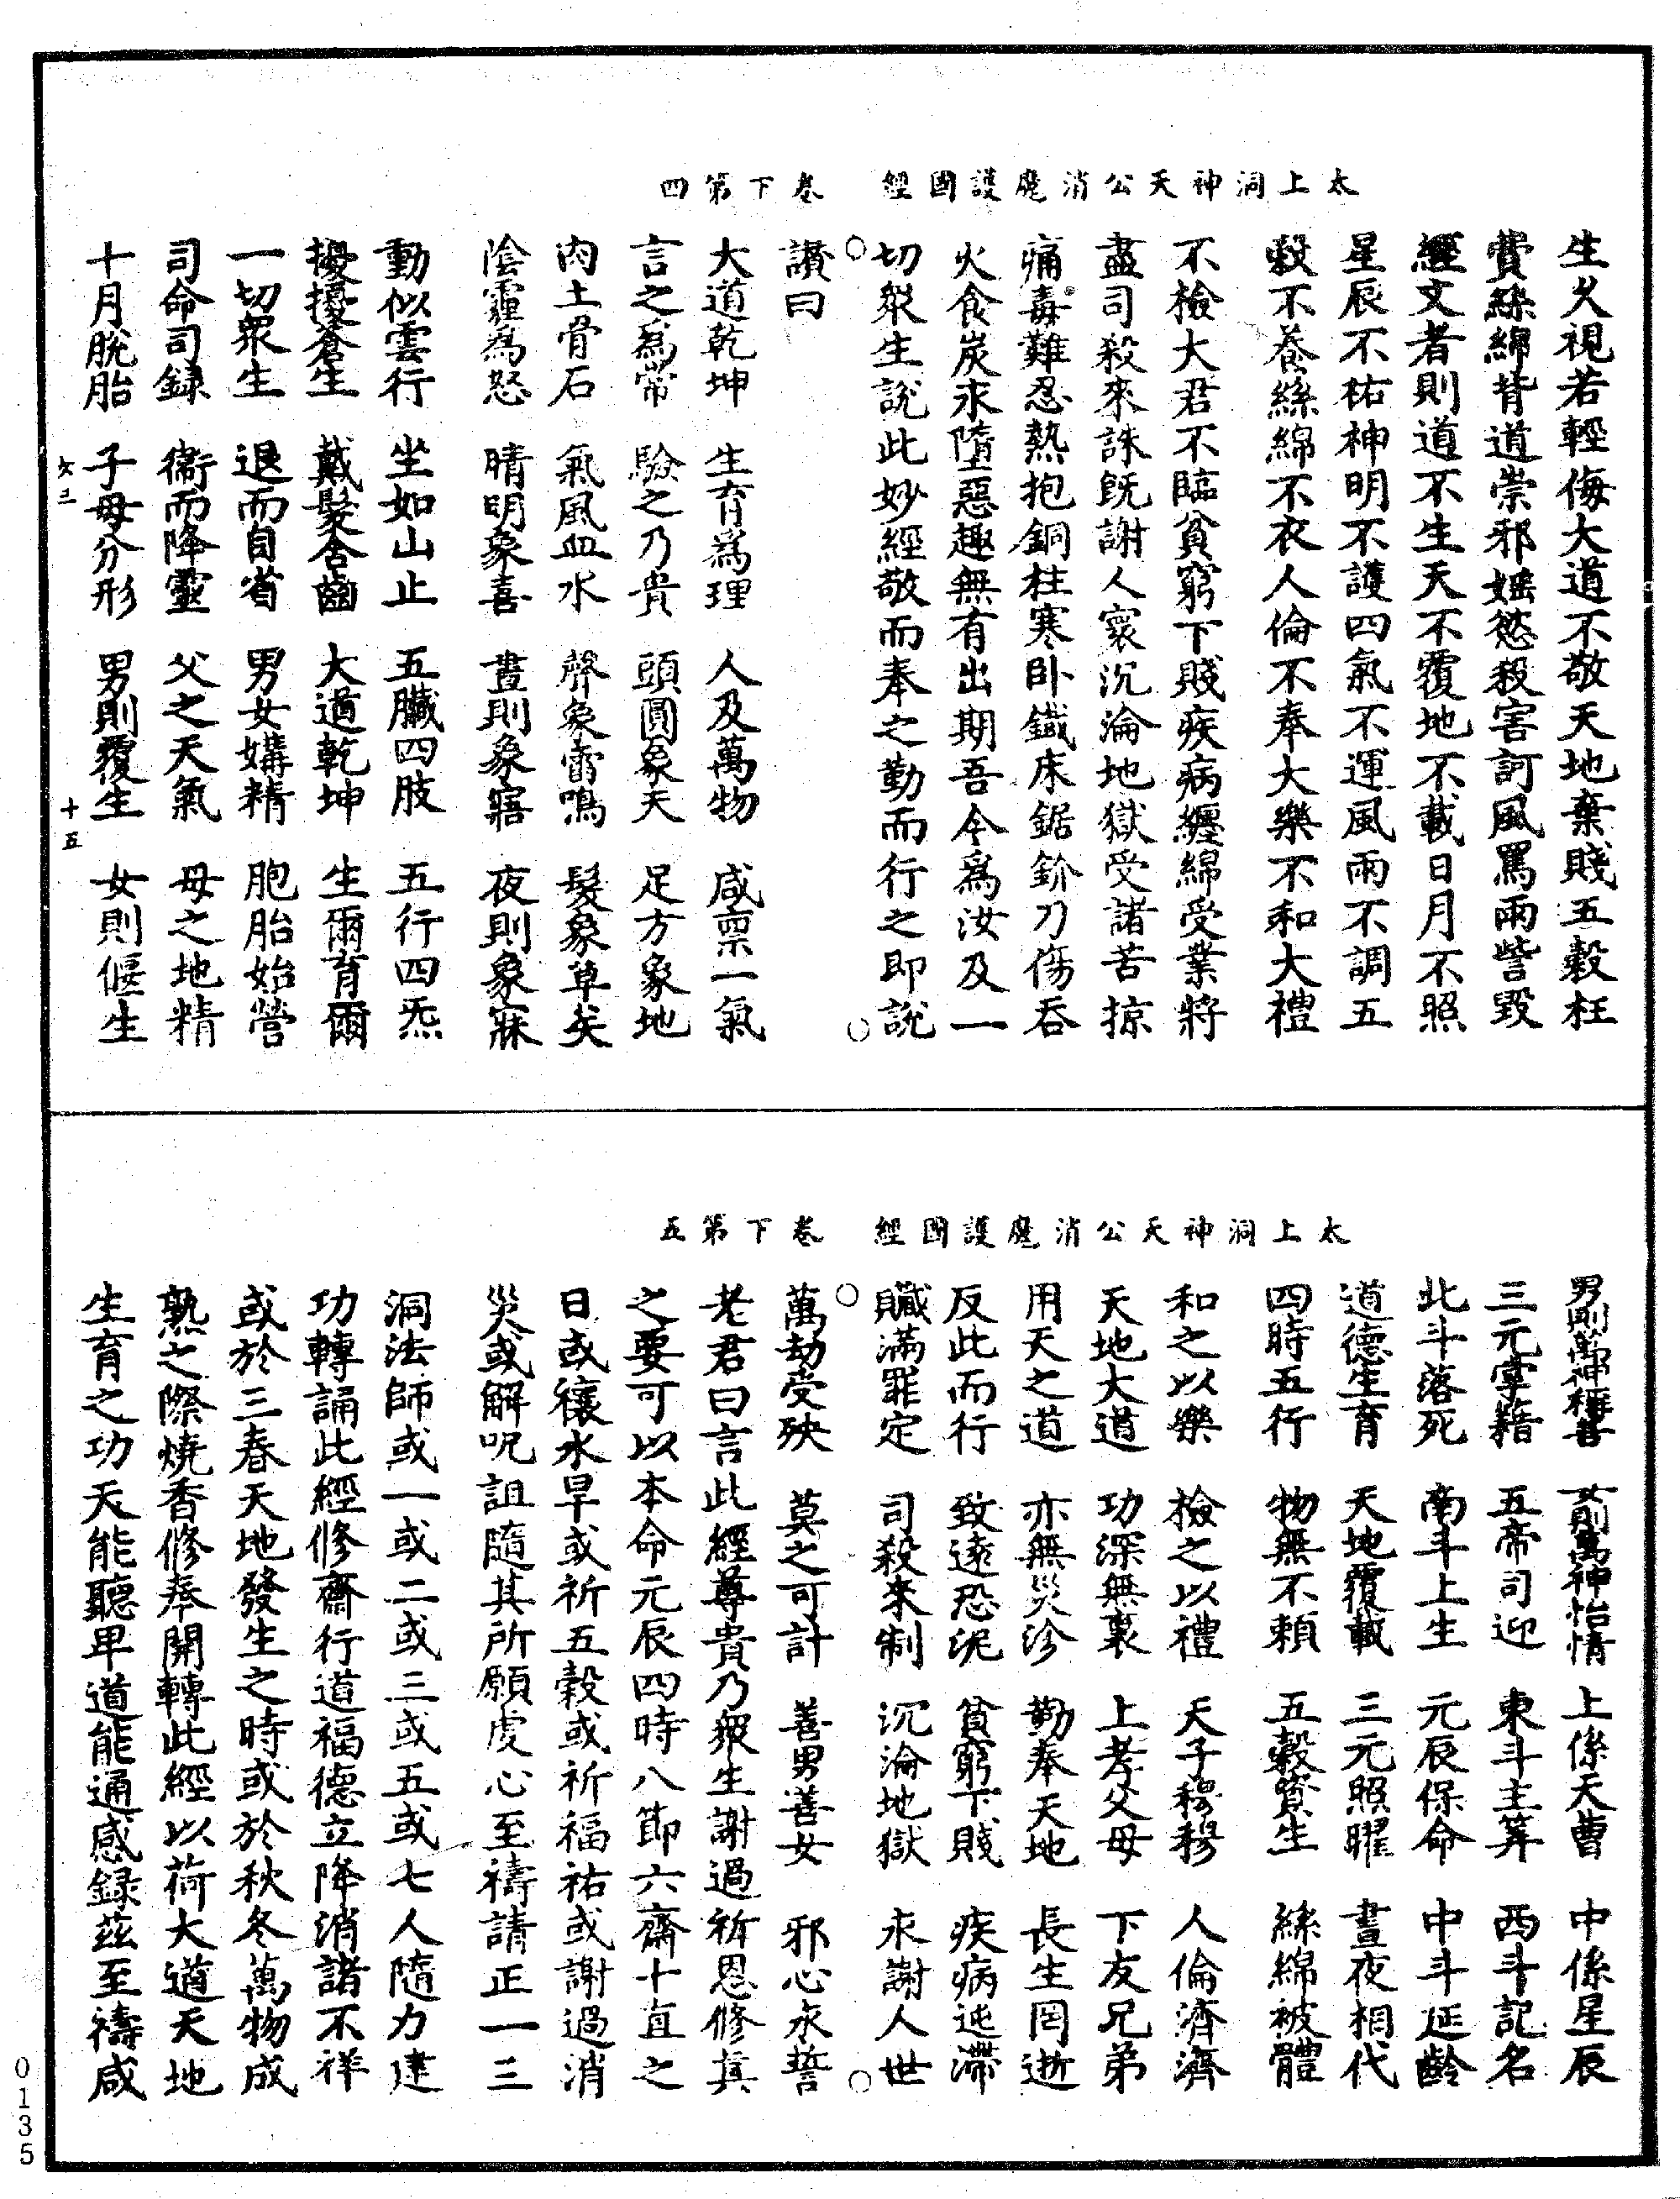 太上洞神天公消魔護國經　卷下第四
生久視若輕侮大道不敬天地棄賤五穀枉
費絲綿背道崇邪婬慾殺害訶風罵雨訾毀
經文者則道不生天不覆地不載日月不照
星辰不祐神明不護四氣不運風雨不調五
穀不養絲綿不衣人倫不奉大樂不和大禮
不檢大君不臨貧窮下賤疾病纏綿受業將
盡司殺來誅旣謝人寰沉淪地獄受諸苦掠
痛毒難忍熱抱銅柱寒卧鐵床鋸鈐刀傷吞
火食炭永墮惡趣無有出期吾今爲汝及一
切衆生說此妙經敬而奉之勤而行之即說
讃曰
大道乾坤　生育爲理　人及萬物　咸禀一氣
言之爲常　驗之乃貴　頭圓象天　足方象地
肉土骨石　氣風血水　聲象雷鳴　髮象草矣
陰霾爲怒　晴明象喜　晝則象寤　夜則象寐
動似雲行　坐如山止　五臟四肢　五行四炁
擾擾蒼生　戴髮含齒　大道乾坤　生爾育爾
一切衆生　退而自省　男女媾精　胞胎始營
司命司録　衞而降靈　父之天氣　母之地精
十月脫胎　子母分形　男則覆生　女則偃生
女三　十五
太上洞神天公消魔護國經　卷下第五
男則萬神稱善　女則萬神怡情　上係天曹　中係星辰
三元掌籍　五帝司迎　東斗主算　西斗記名
北斗落死　南斗上生　元辰保命　中斗延齡
道德生育　天地覆載　三元照曜　晝夜相代
四時五行　物無不賴　五穀資生　絲綿被體
和之以樂　檢之以禮　天子穆穆　人倫濟濟
天地大道　功深無裏　上考父母　下友兄弟
用天之道　亦無災沴　勤奉天地　長生罔逝
反此而行　致遠恐泥　貧窮下賤　疾病迍滯
贓滿罪定　司殺來制　沉淪地獄　永謝人世
萬劫受殃　莫之可計　善男善女　邪心永誓
老君曰言此經尊貴乃衆生謝過祈恩修真
之要可以本命元辰四時八節六齋十直之
日或禳水旱或祈五穀或祈福祐或謝過消
災或解呪詛隨其所願虔心至禱請正一三
洞法師或一或二或三或五或七人隨力建
功轉誦此經修齋行道福德立降消諸不祥
或於三春天地發生之時或於秋冬萬物成
熟之際燒香修奉開轉此經以荷大道天地
生育之功天能聽卑道能通感録茲至禱咸
0135